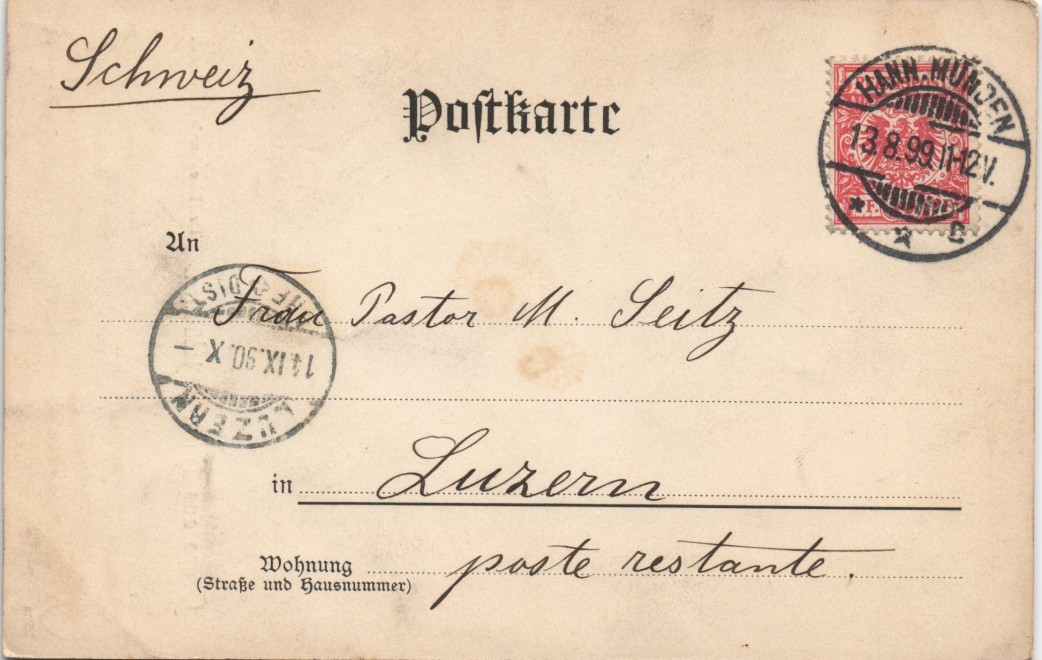 Schweiz
Postkarte
HANN. MÜNDEN
13.8.99.11-12V.
* * c
An
Frau Pastor M. Seitz
LUZERN
14.IX.90.X
in Luzern
Wohnung
(Straße und Hausnummer)
poste restante.